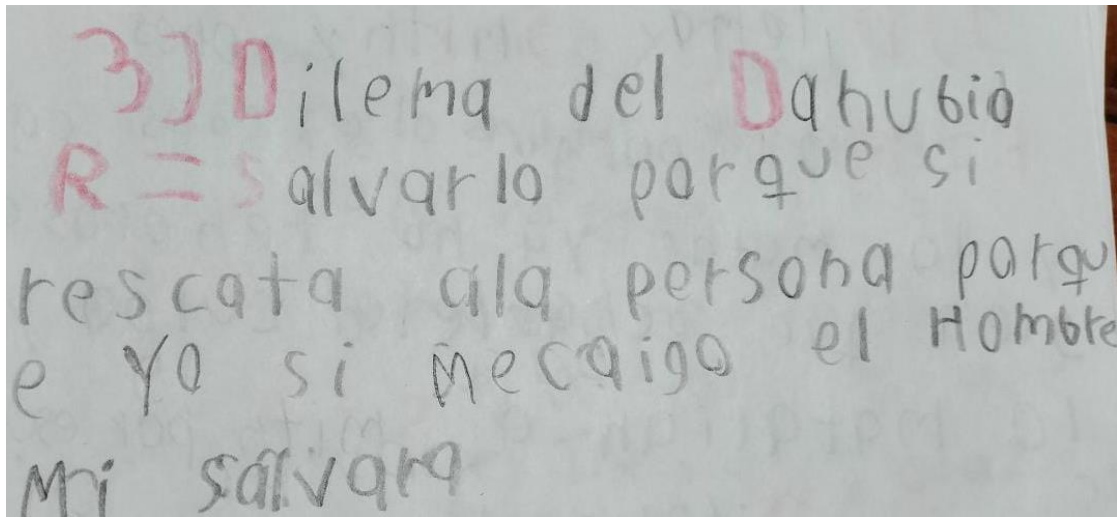 3) Dilema del Danubio
R = salvarlo porque si
rescata ala persona porqu
e Yo si mecaigo el Hombre
Mi salvara